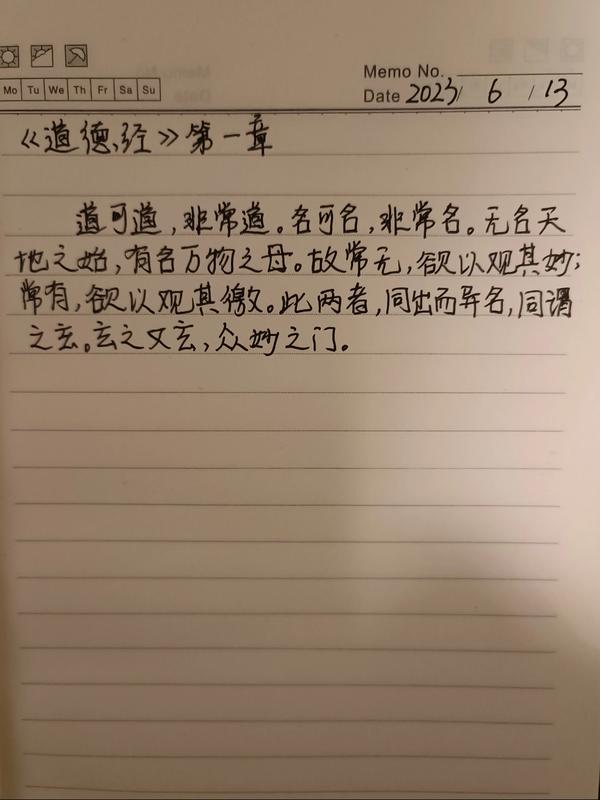 Memo No.
Mo Tu We Th Fr Sa Su
Date 2023/ 6 / 13
《道德经》第一章
道可道,非常道。名可名,非常名。无名天
地之始,有名万物之母。故常无,欲以观其妙;
常有,欲以观其徼。此两者,同出而异名,同谓
之玄。玄之又玄,众妙之门。